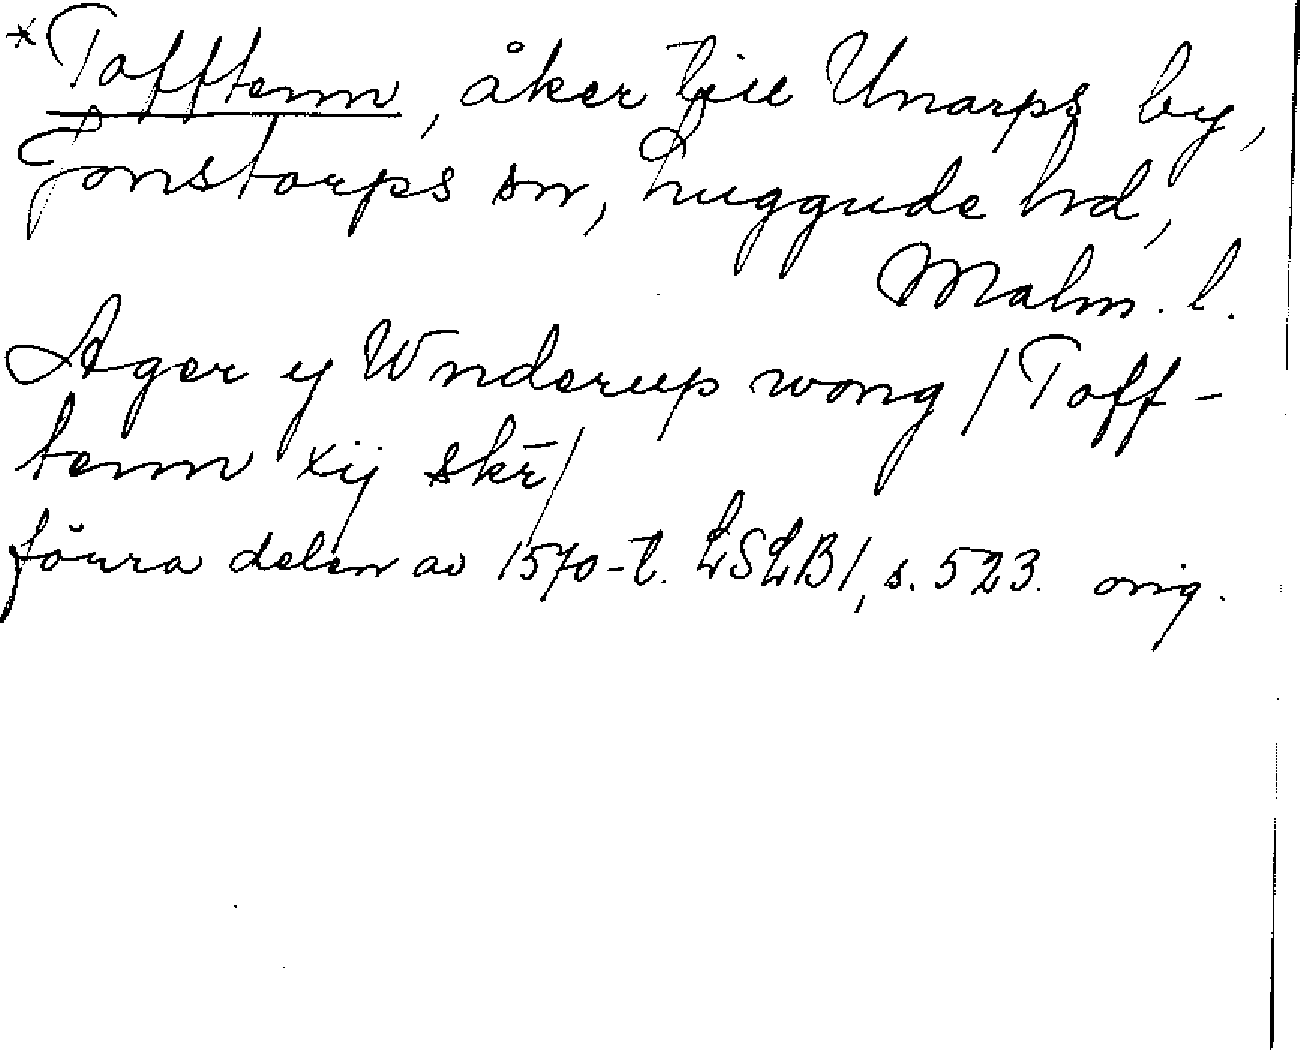 *Tafftenn, åker till Unarps by,
Jonstorps sn, Luggude hd,
Malm. l.
Ager y Wnderup wong / Taff-
tenn xij skr̄/
förra delen av 1570-t. LSLB1, s. 523. orig.